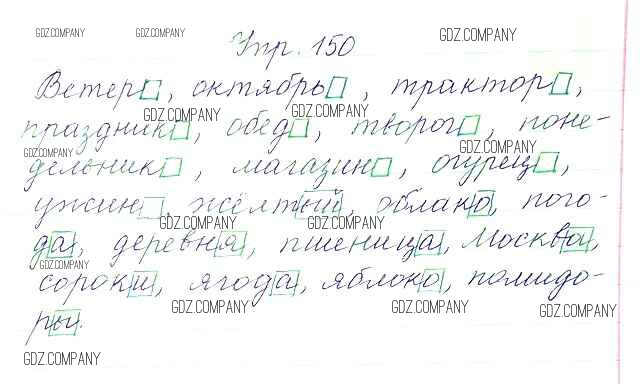 GDZ.COMPANY GDZ.COMPANY GDZ.COMPANY
Упр. 150
Ветер, октябрь, трактор,
GDZ.COMPANY GDZ.COMPANY
праздник, обед, творог, поне-
GDZ.COMPANY GDZ.COMPANY
дельник, магазин, огурец,
ужин, жёлтый, облако, пого-
GDZ.COMPANY GDZ.COMPANY
да, деревня, пшеница, Москва,
GDZ.COMPANY
сороки, ягода, яблоко, помидо-
GDZ.COMPANY GDZ.COMPANY GDZ.COMPANY
ры.
GDZ.COMPANY